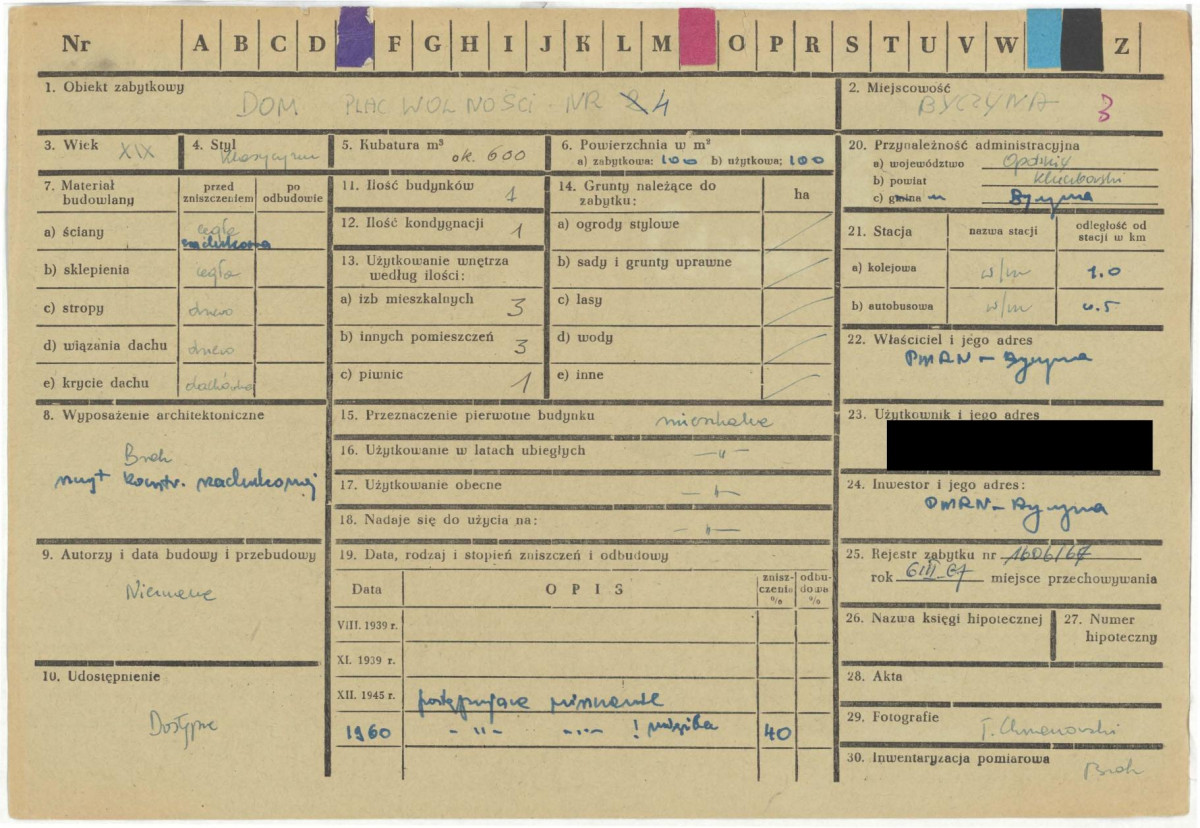 Nr A B C D F G H I J K L M O P R S T U V W Z
1. Obiekt zabytkowy
DOM PLAC WOLNOŚCI NR 4
2. Miejscowość
BYCZYNA 3
3. Wiek XIX
4. Styl klasycyzm
5. Kubatura m³ ok. 600
6. Powierzchnia w m²
a) zabytkowa: 100 b) użytkowa; 100
20. Przynależność administracyjna
a) województwo Opolskie
b) powiat Kluczborski
c) gmina m Byczyna
7. Materiał budowlany
przed zniszczeniem
po odbudowie
a) ściany cegła
szachulcowa
b) sklepienia cegła
c) stropy drewno
d) wiązania dachu drewno
e) krycie dachu dachówka
11. Ilość budynków 1
12. Ilość kondygnacji 1
13. Użytkowanie wnętrza
według ilości:
a) izb mieszkalnych 3
b) innych pomieszczeń 3
c) piwnic 1
14. Grunty należące do
zabytku:
ha
a) ogrody stylowe
b) sady i grunty uprawne
c) lasy
d) wody
e) inne
21. Stacja
nazwa stacji
odległość od
stacji w km
a) kolejowa w/m 1.0
b) autobusowa w/m 0.5
22. Właściciel i jego adres
PMRN – Byczyna
8. Wyposażenie architektoniczne
Brak
konstr. szachulcowej
15. Przeznaczenie pierwotne budynku mieszkalne
16. Użytkowanie w latach ubiegłych –"–
17. Użytkowanie obecne –"–
18. Nadaje się do użycia na: –"–
23. Użytkownik i jego adres
24. Inwestor i jego adres:
PMRN – Byczyna
9. Autorzy i data budowy i przebudowy
Nieznane
19. Data, rodzaj i stopień zniszczeń i odbudowy
Data
OPIS
znisz-
czenia
%
odbu-
dowa
%
VIII. 1939 r.
XI. 1939 r.
XII. 1945 r. postępujące zniszczenie
1960 – " – – " – ! 40
25. Rejestr zabytku nr 1606/67
rok 6 III 67 miejsce przechowywania
26. Nazwa księgi hipotecznej
27. Numer
hipoteczny
10. Udostępnienie
Dostępne
28. Akta
29. Fotografie
30. Inwentaryzacja pomiarowa
Brak